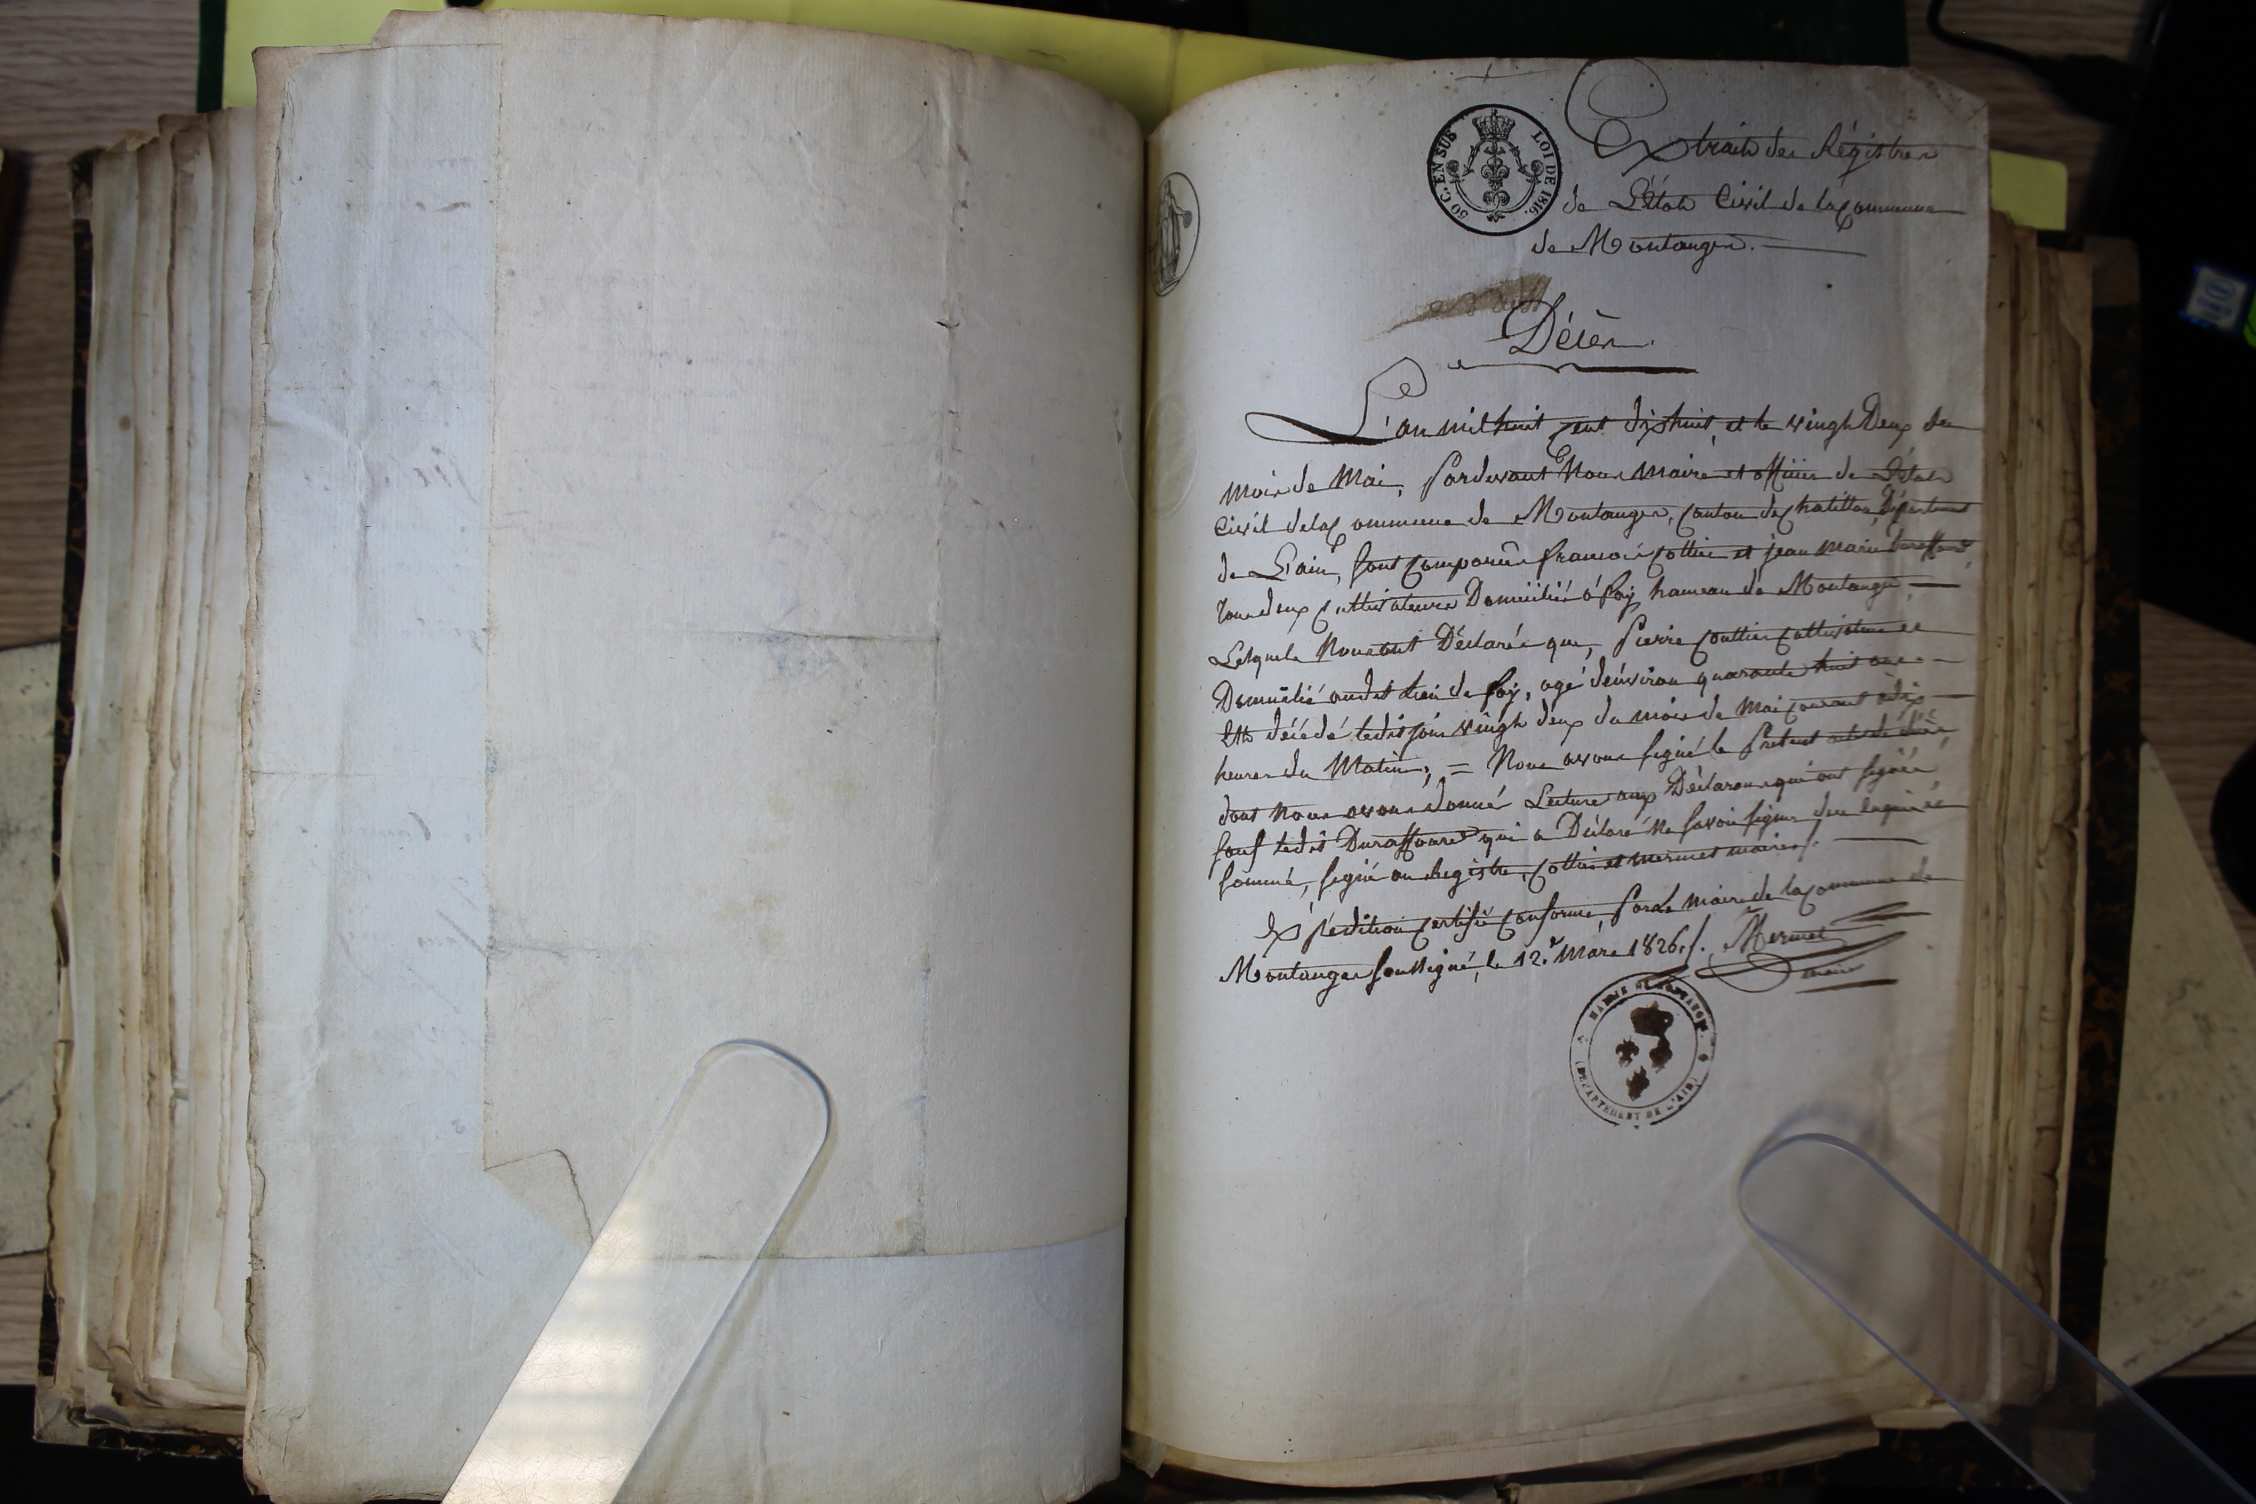 Extrait des Régistres
50 C. EN SUB LOI DE 1816.
de L'état Civil de la Commune
de Montanges.
Décès.
L'an mil huit Cent dix huit, et le vingt Deux du
mois de Mai, Pardevant Nous Maire et officier de L'état
Civil de la Commune de Montanges, Canton de Chatillon, Département
de L'ain, sont Comparûs francois Cottier et jean marie Duraffourd,
Tous deux Cultivateurs Domicilié à foy hameau de Montanges
Lesquels Nous ont Déclarés que, Pierre Couttier Cultivateur et
Domicilié audit Lieu de foy, agé d'énviron quarante huit ans
Est décédé ledit jour vingt deux du mois de Mai Courant à dix
heures du Matin; = Nous avons signé le Présent acte de décès
dont Nous avons donné Lecture aux Déclarans qui ont signés
sauf ledit Duraffourd qui a Déclaré Ne savoir signer de ce enquis et
sommé, signé au Registre, Cottier et Mermet maire /.
Expédition Certifié Conforme, Par Le Maire de la Commune de
Montanges soussigné, le 12. Mars 1826. /. Mermet
maire
MAIRIE DE MONTANGES
(DÉPARTEMENT DE L'AIN)